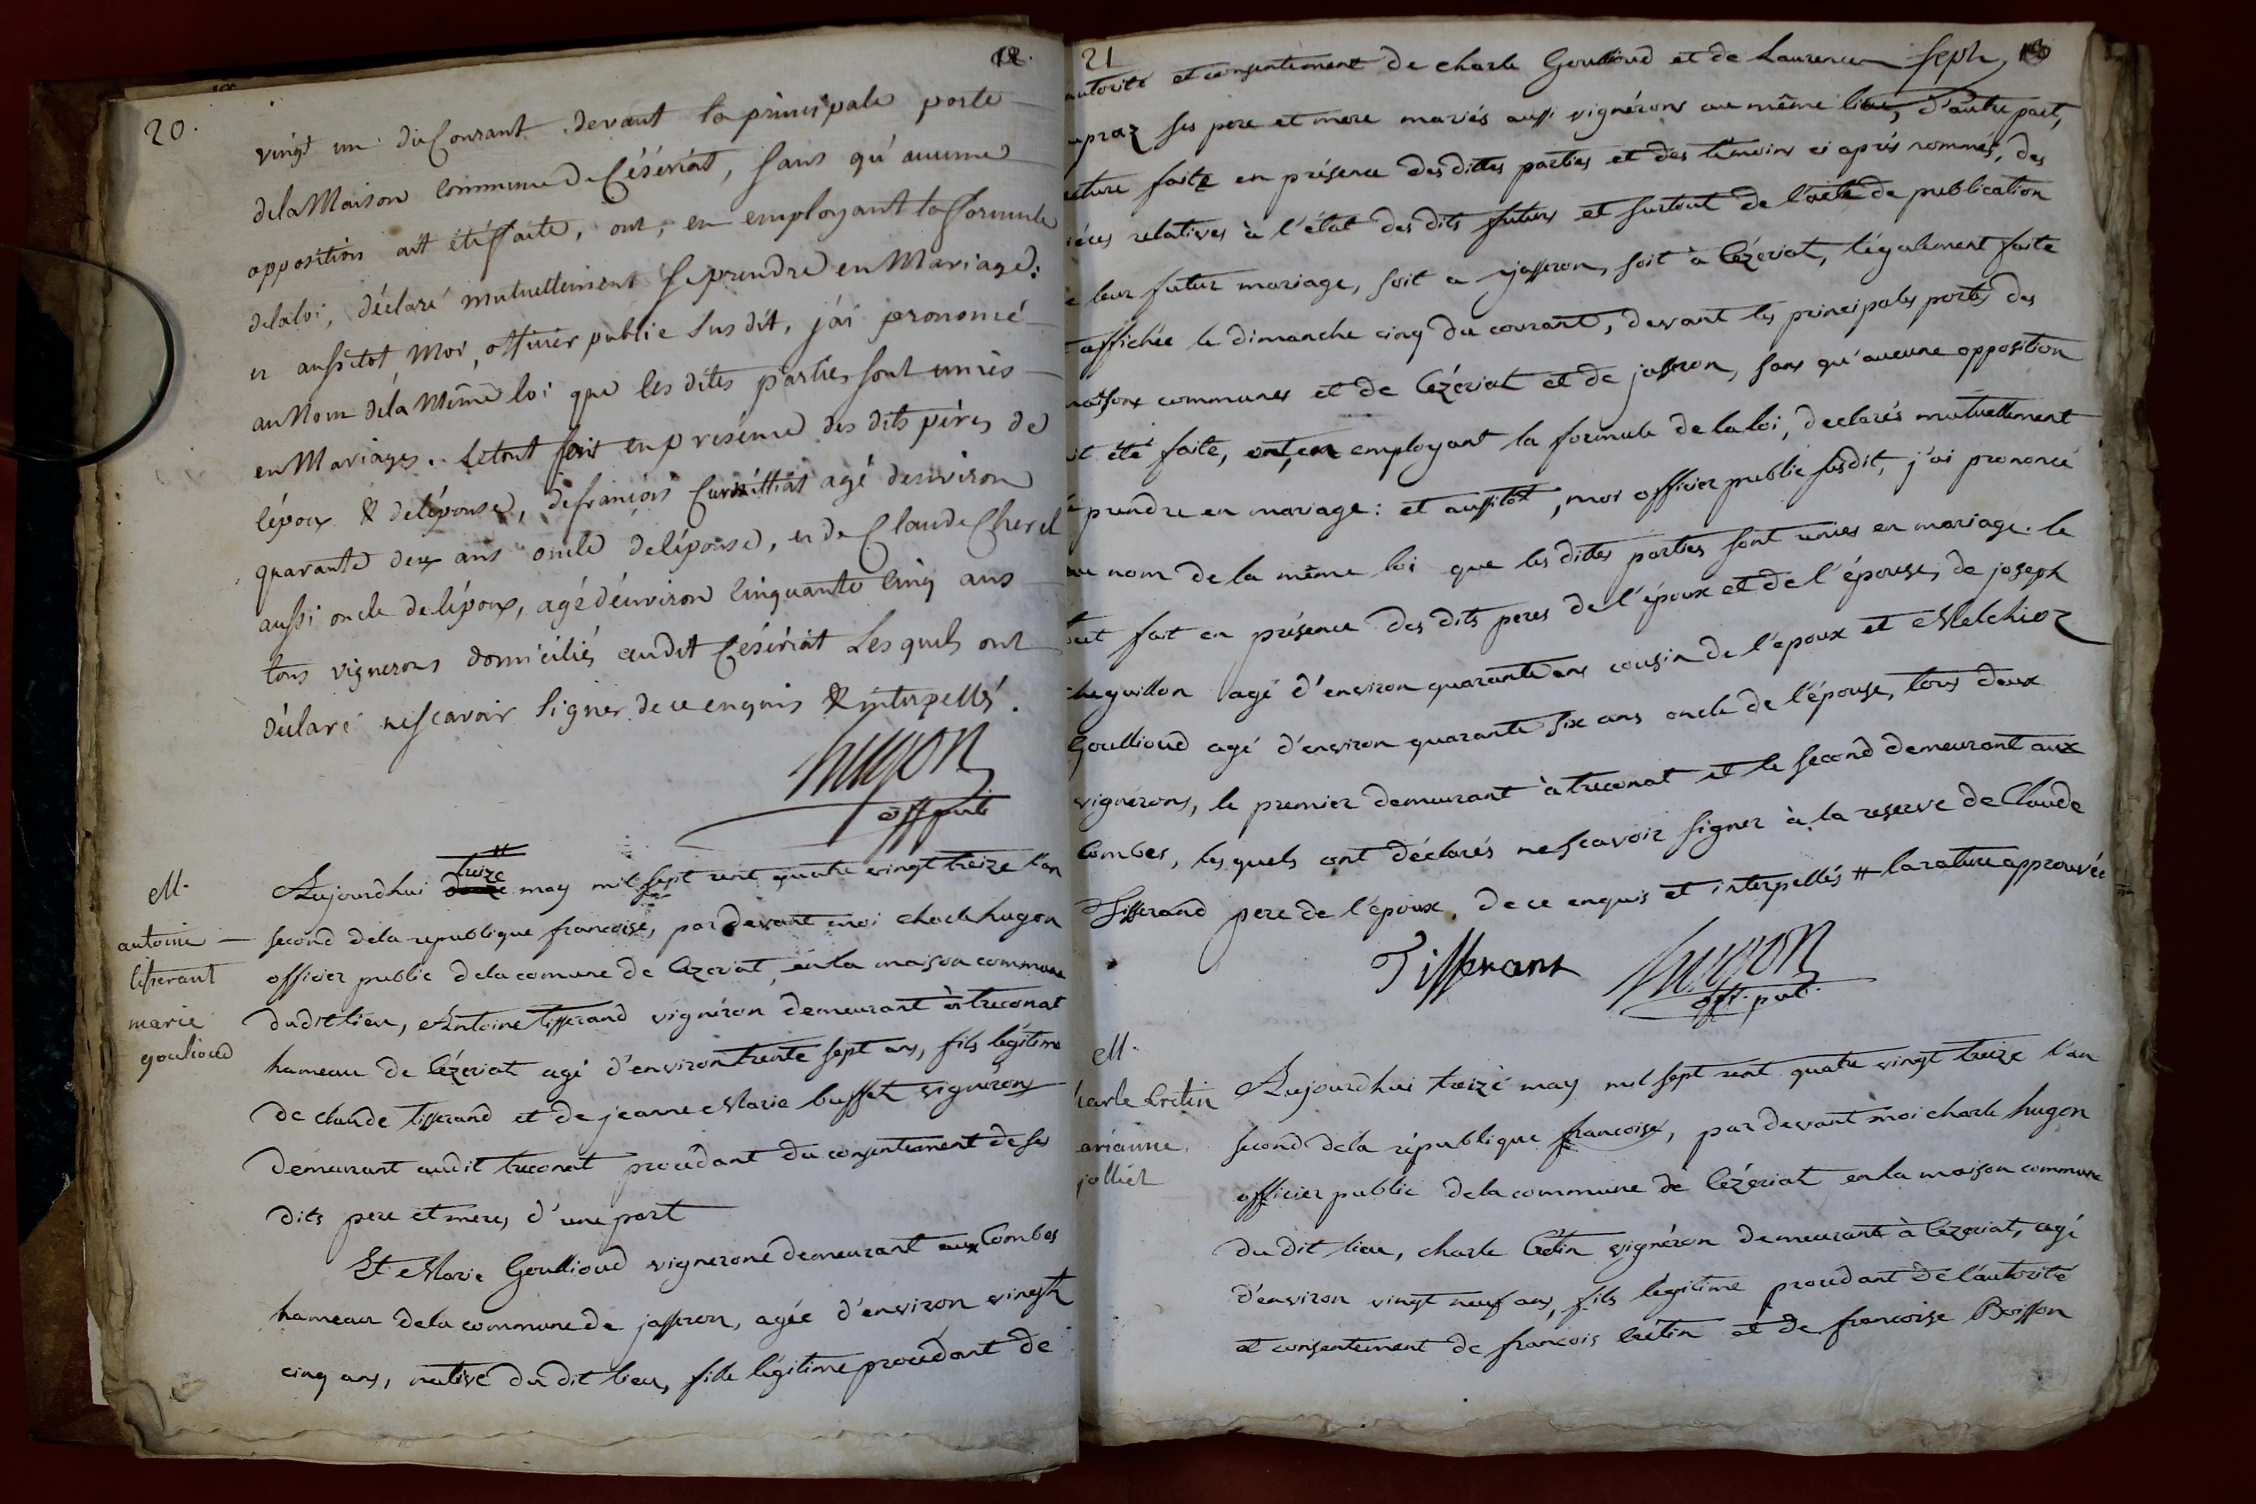 20.
12.
vingt un du Courant devant la principale porte
de la Maison Commune de Césériat, sans qu'aucune
opposition ait été faite, ont, en employant la formule
de la loi, déclaré mutuellement se prendre en Mariage:
et aussitot, Moi, officier public susdit, j'ai prononcé
au Nom de la Même loi que les dites parties sont unies
en Mariages. Le tout fait en présence des dits pères de
l'époux & de l'épouse, de françois agé d'environ
quarante deux ans oncle de l'épouse, et de Claude Cherel
aussi oncle de l'époux, agé d'environ Cinquante Cinq ans
tous vignerons domiciliés audit Césériat Lesquels ont
déclaré ne sçavoir signer de ce enquis & interpellé.
hugon
off pub
M.
antoine
tisserant
marie
goulioud
Aujourdhui treize may mil sept cent quatre vingt treize l'an
second de la republique francoise, par devant moi charle hugon
officier public de la comune de Cezeriat, en la maison commune
dudit lieu, Antoine tisserand vignéron demeurant à treconat
hameau de Cézeriat agé d'environ trente sept ans, fils légitime
de claude tisserand et de jeanne Marie buffet vignérons
demeurant audit treconat procédant du consentement de ses
dits pere et mere, d'une part
Et Marie Goullioud vignerone demeurant aux Combes
hameau de la commune de jasseron, agée d'environ vingt
cinq ans, native du dit lieu, fille légitime procédant de
21
autorité et consentement de charle Goullioud et de Laurence seph
upraz ses pere et mere mariés aussi vignérons au même lieu, d'autre part,
cture faite en présence des dittes parties et des témoins ci après nommés, des
iéces relatives à l'état des dits futurs et surtout de l'acte de publication
e leur futur mariage, soit a jasseron, soit à Cézeriat, légalement faite
t affichée le dimanche cinq du courant, devant les principales portes des
maisons communes et de Cézeriat et de jasseron, sans qu'aucune opposition
it été faite, ont, en employant la formule de la loi, declarés mutuellement
e prendre en mariage: et aussitot, moi officier public susdit, j'ai prononcé
au nom de la même loi que les dittes parties sont unies en mariage. le
out fait en présence des dits peres de l'époux et de l'épouse, de joseph
cheguillon agé d'environ quarante ans cousin de l'époux et Melchior
Goullioud agé d'environ quarante six ans oncle de l'épouse, tous deux
vignérons, le premier demeurant à treconat et le second demeurant aux
Combes, lesquels ont déclarés ne sçavoir signer à la reserve de Claude
Tisserand pere de l'époux, de ce enquis et interpellés # la rature approuvée
Tisserant hugon
off. pub.
M.
harle Cretin
arianne
jolliet
Aujourdhui treize may mil sept cent quatre vingt treize l'an
second de la république francoise, par devant moi charle hugon
officier public de la commune de Cézeriat en la maison commune
du dit lieu, charle Crétin vignéron demeurant à Cezeriat, agé
d'environ vingt neuf ans, fils légitime procédant de l'autorité
et consentement de francois Crétin et de francoise Boisson